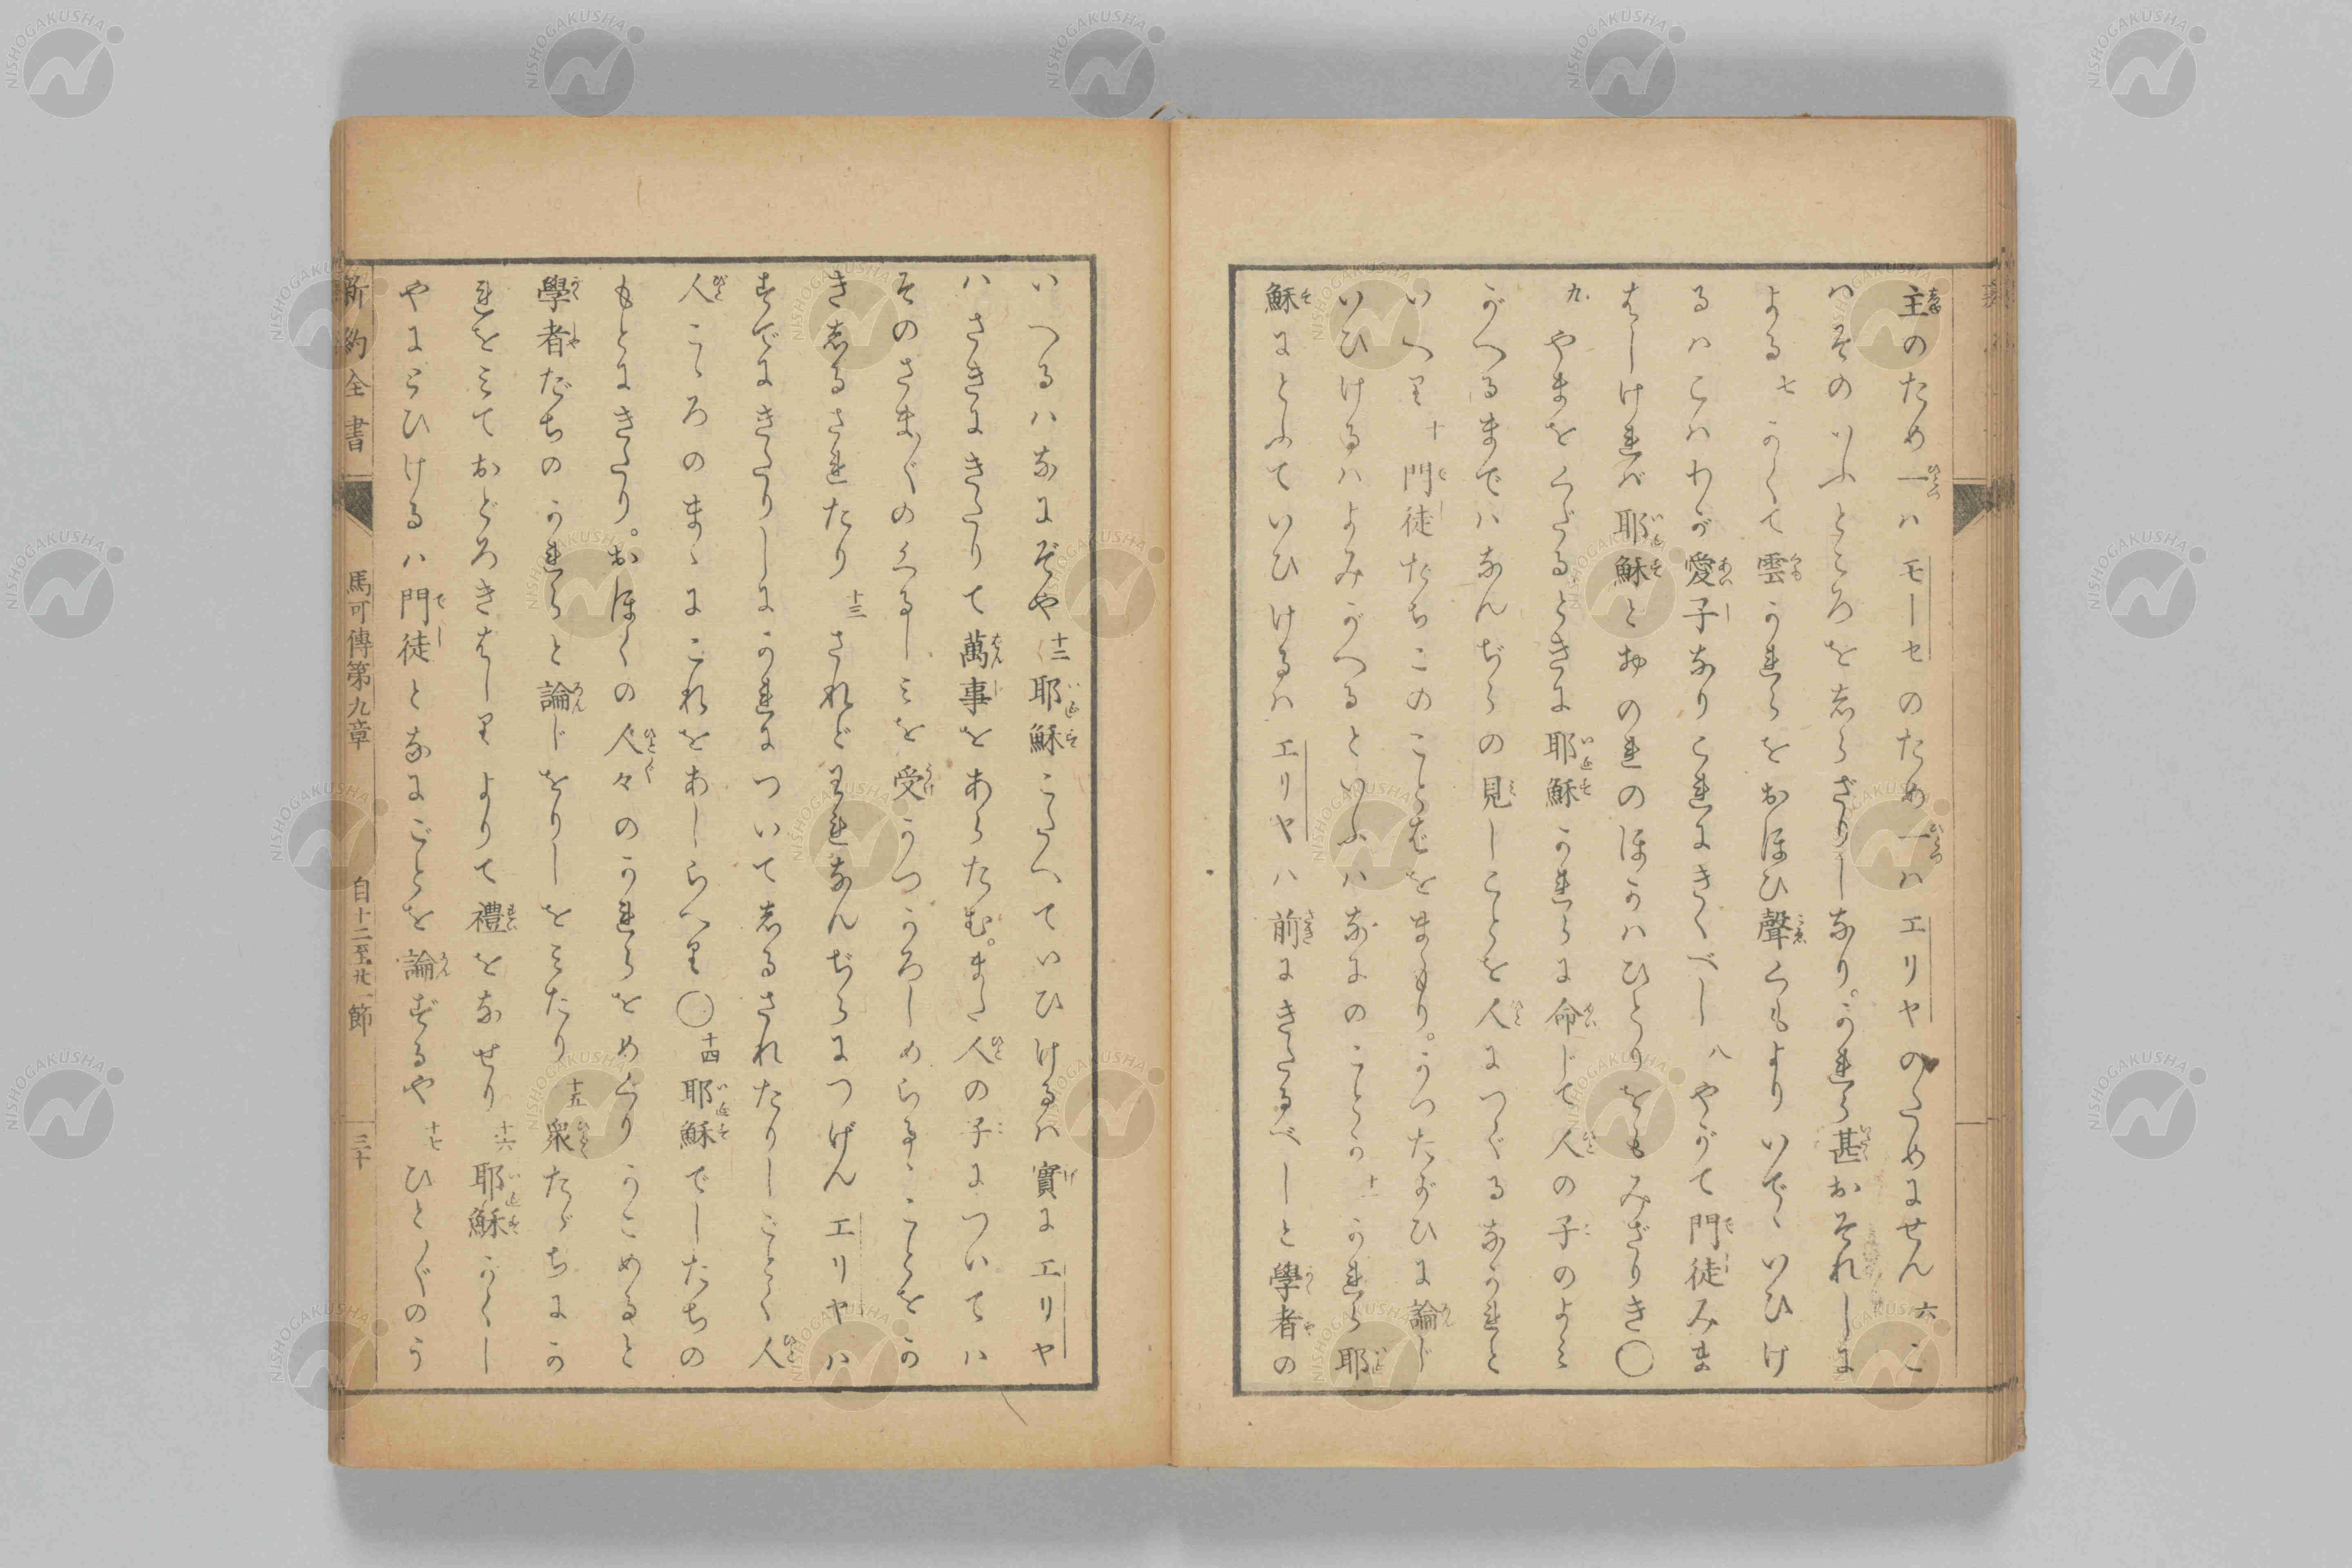 主のため一ハモーセのため一ハエリヤのためにせん 六 こ
ハそのいふところを志らざりしなり。かれら甚おそれしに
よる 七 かくて雲かれらをおほひ聲くもよりいでゝいひけ
るハこハわが愛子なりこれにきくべし 八 やがて門徒みま
はしけれバ耶穌とおのれのほかハひとりをもみざりき○
九 やまをくだるときに耶穌かれらに命じて人の子のよみ
がへるまでハなんぢらの見しことを人につぐるなかれと
いへり 十 門徒たちこのことばをまもり。かつたがひに論じ
いひけるハよみがへるといふハなにのことか 十一 かれら耶
穌にとふていひけるハエリヤハ前にきたるべしと學者の
いへるハなにぞや 十二 耶穌こたへていひけるハ實にエリヤ
ハさきにきたりて萬事をあらたむ。また人の子についてハ
そのさまざまのくるしみを受かつかろしめらるゝことをか
き志るされたり 十三 されどわれなんぢらにつげんエリヤハ
すでにきたりしにかれについて志るされたりしごとく人
人こゝろのまゝにこれをあしらへり○ 十四 耶穌でしたちの
もとにきたり。おほくの人々のかれらをめぐりかこめると
學者だちのかれらと論じをりしをみたり 十五 衆たゞちにか
れをみておどろきはしりよりて禮をなせり 十六 耶穌がくし
やにとひけるハ門徒となにごとを論ずるや 十七 ひとびとのう
新約全書 馬可傳第九章 自十二至廿一節 三十